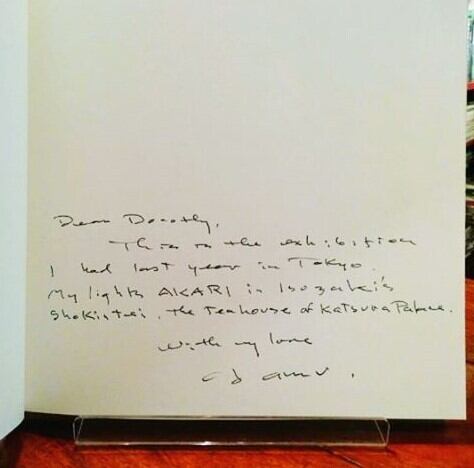 Dear Dorothy,
This is the exhibition
I had last year in Tokyo.
My lights AKARI in Isozaki's
Shokintei, the teahouse of Katsura Palace.
With my love